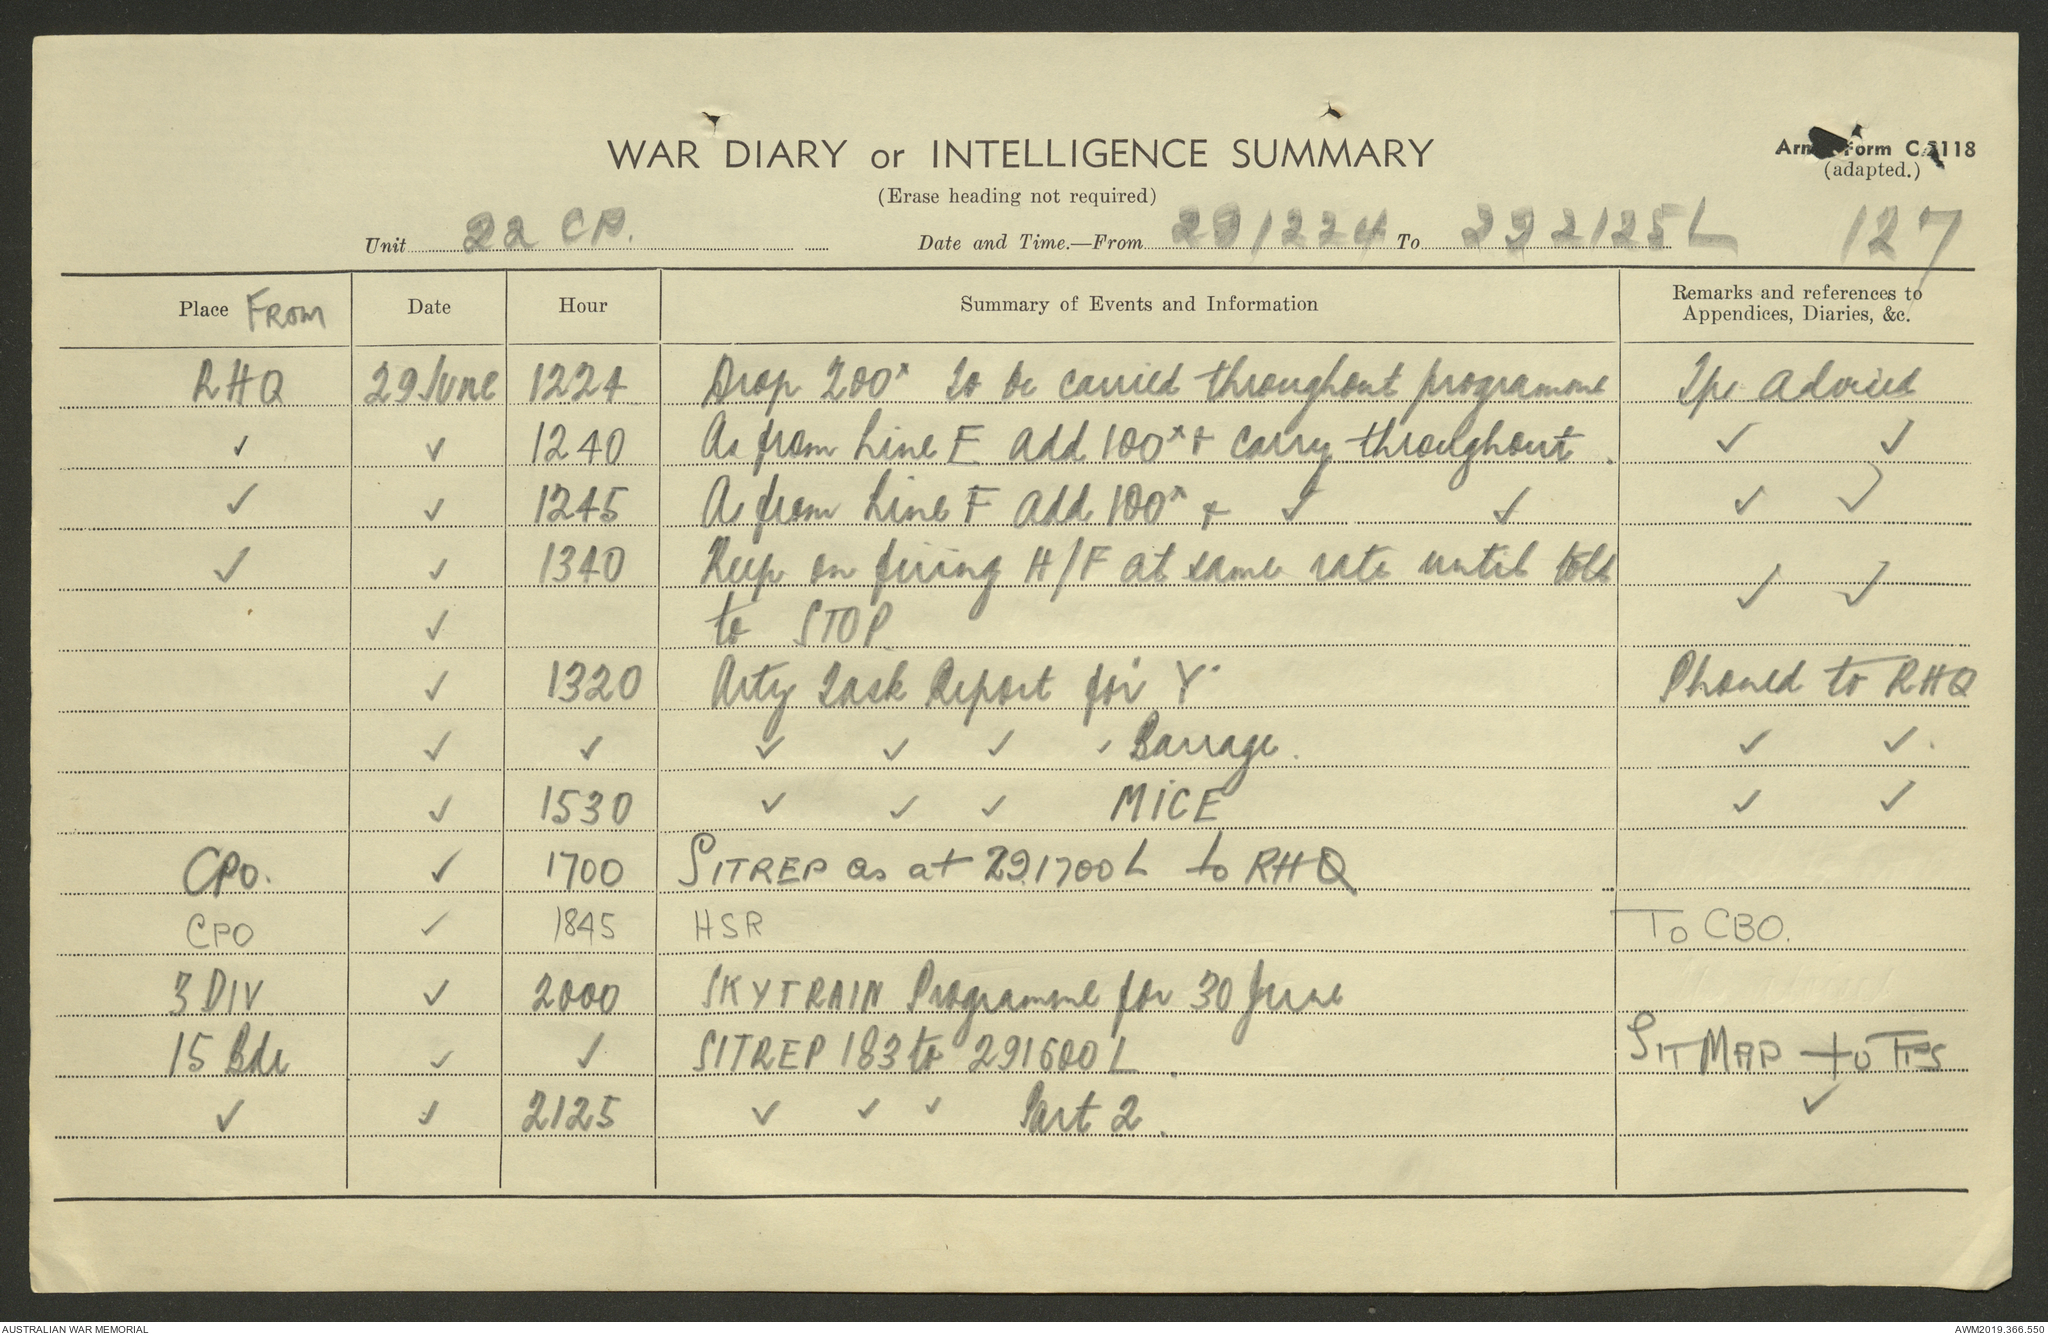 WAR DIARY or INTELLIGENCE SUMMARY
Army Form C.5118
(Erase heading not required)
(adapted.)
Unit 22 CP. Date and Time.—From 291224 To 292125L 127
Place FROM Date Hour Summary of Events and Information Remarks and references to
Appendices, Diaries, &c.
RHQ 29 June 1224 Drop 200x to be carried throughout programme Tps advised
✓ ✓ 1240 As from Line E add 100x + carry throughout. ✓ ✓
✓ ✓ 1245 As from Line F add 100x + ✓ ✓ ✓ ✓
✓ ✓ 1340 Keep on firing H/F at same rate until told ✓ ✓
✓ to STOP
✓ 1320 Arty Task Report for Y. Phoned to RHQ
✓ ✓ ✓ ✓ ✓ ✓ Barrage. ✓ ✓.
✓ 1530 ✓ ✓ ✓ MICE ✓ ✓
CPO. ✓ 1700 SITREP as at 291700L to RHQ
CPO ✓ 1845 HSR TO CBO.
3 DIV ✓ 2000 SKYTRAIN Programme for 30 June
15 Bde ✓ ✓ SITREP 183 to 291600L. SITMAP + to TPS
✓ ✓ 2125 ✓ ✓ ✓ Part 2. ✓
AUSTRALIAN WAR MEMORIAL
AWM2019.366.550